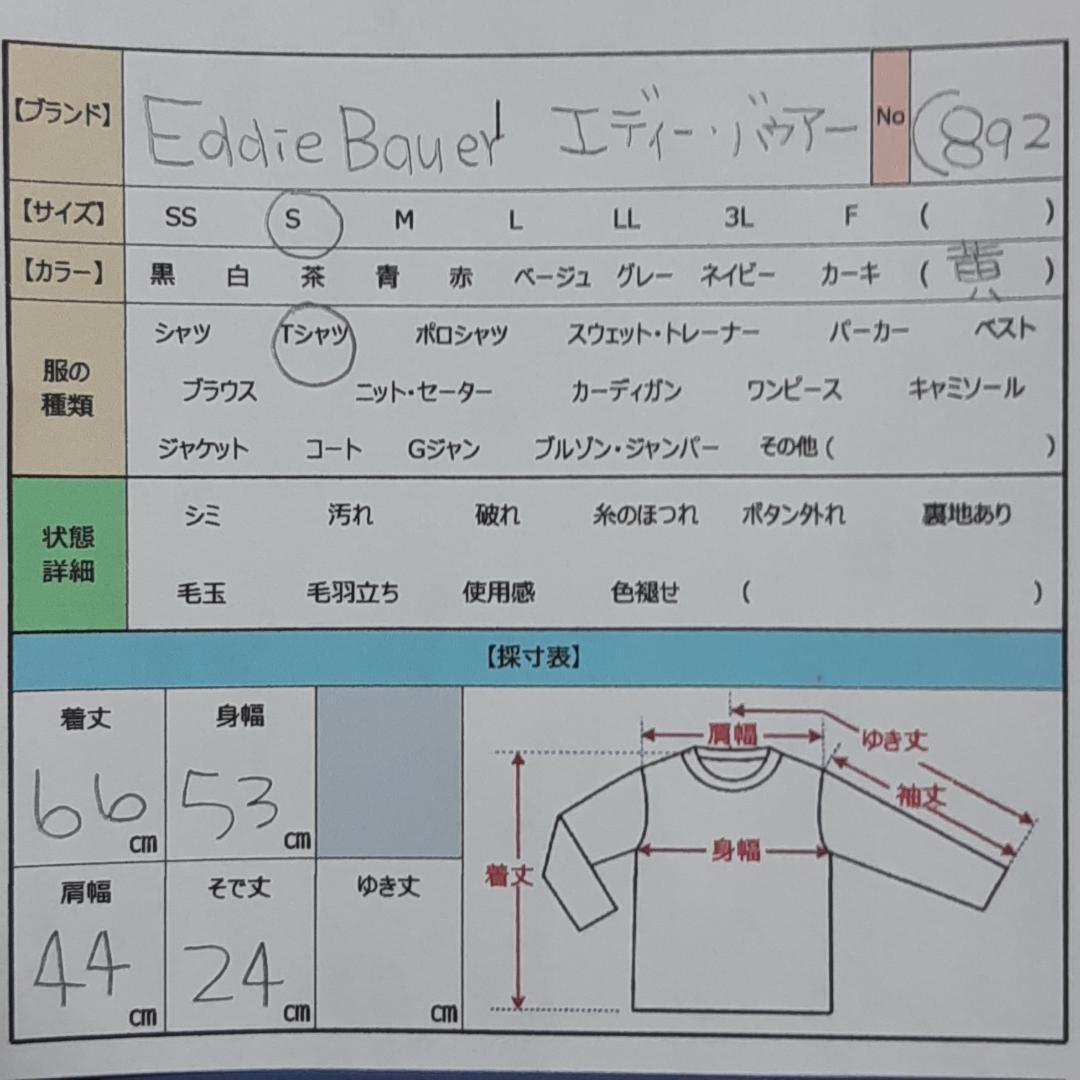 【ブランド】 Eddie Bauer エディー・バウアー No 892
【サイズ】 SS S M L LL 3L F ( )
【カラー】 黒 白 茶 青 赤 ベージュ グレー ネイビー カーキ ( 黄 )
服の種類
シャツ Tシャツ ポロシャツ スウェット・トレーナー パーカー ベスト
ブラウス ニット・セーター カーディガン ワンピース キャミソール
ジャケット コート Gジャン ブルゾン・ジャンパー その他 ( )
状態詳細
シミ 汚れ 破れ 糸のほつれ ボタン外れ 裏地あり
毛玉 毛羽立ち 使用感 色褪せ ( )
【採寸表】
着丈 身幅
66 cm 53 cm
肩幅 そで丈 ゆき丈
44 cm 24 cm cm
肩幅
ゆき丈
袖丈
身幅
着丈